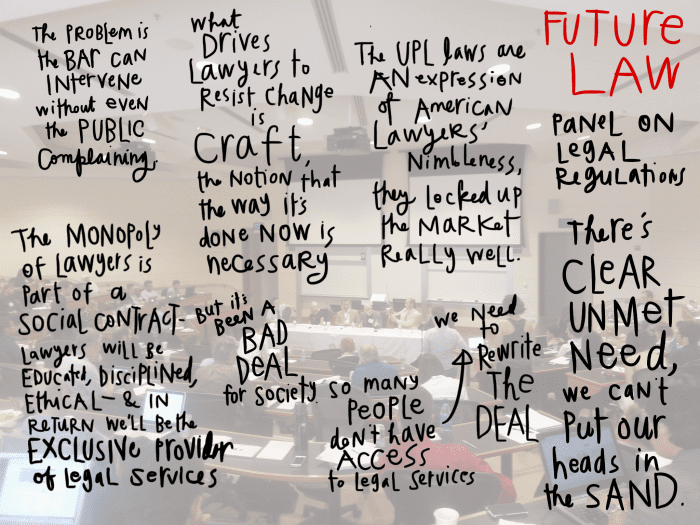 FUTURE
LAW
PANEL ON
LEGAL
REGULATIONS
The PROBLEM is
the BAR CAN
INtERVENE
without even
the PUBLIC
Complaining.
what
DRIVES
LAWYERS to
Resist CHANGE
is
CRAFT,
the NOTION that
the way it's
done NOW is
necessARy
The UPL laws are
AN expRession
of AmeRICAN
LAwyeRs'
NimbLeness,
they locked up
the MARKet
ReaLLy weLL.
The MONOPOLy
of Lawyers is
part of a
SOCIAL CONTRACT-
Lawyers WILL BE
EDUCated, DISCIPLINed,
ETHICAL - & IN
RETURN we'LL Be the
EXCLUSIVE Provider
of LegaL Services
But it's
BeeN A
BAD
DeAL
for society. so many
PEOPLE
don't have
ACCESS
to LegaL Services
we Need
to
Rewrite
The
DEAL
There's
CLEAR
UNMet
Need,
we CAN't
Put our
heads in
the SAND.